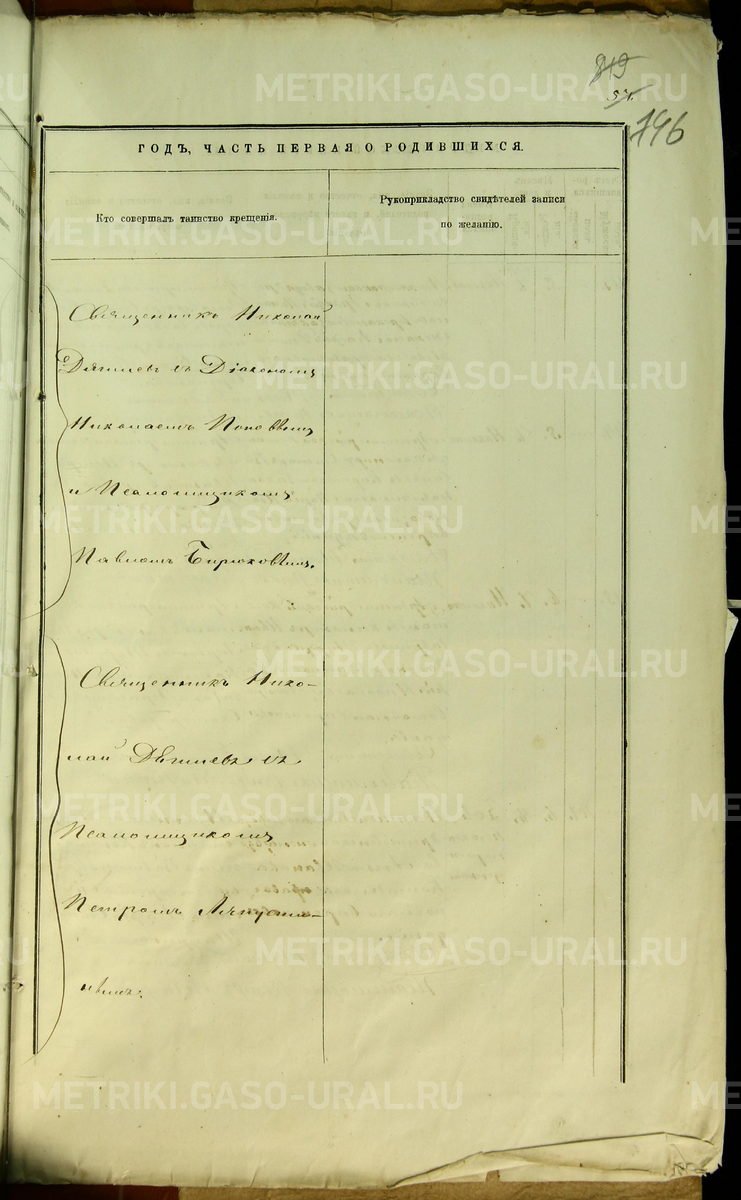 849
54.
746
ГОДЪ, ЧАСТЬ ПЕРВАЯ О РОДИВШИХСЯ.
Кто совершалъ таинство крещенія.
Рукоприкладство свидѣтелей записи
по желанію.
Священникъ Николай
Дягилевъ съ Діакономъ
Николаемъ Поповымъ
и Псаломщикомъ
Павломъ Бирюковымъ.
Священникъ Нико-
лай Дягилевъ съ
Псаломщикомъ
Петромъ Ляпусти-
нымъ.
METRIKI.GASO-URAL.RU